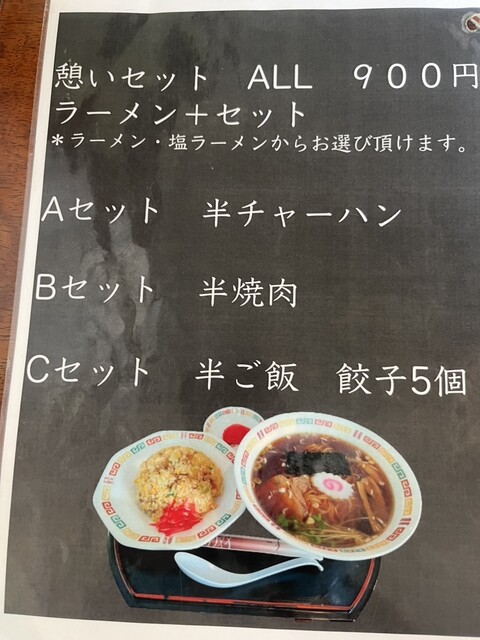 憩いセット ALL ９００円
ラーメン＋セット
＊ラーメン・塩ラーメンからお選び頂けます。
Aセット 半チャーハン
Bセット 半焼肉
Cセット 半ご飯 餃子5個